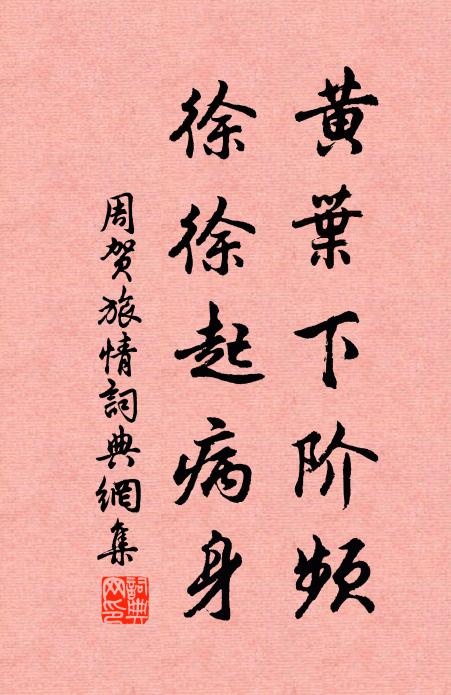 黄葉下阶頻
徐徐起病身
周贺旅情詞典網集
詞典网印